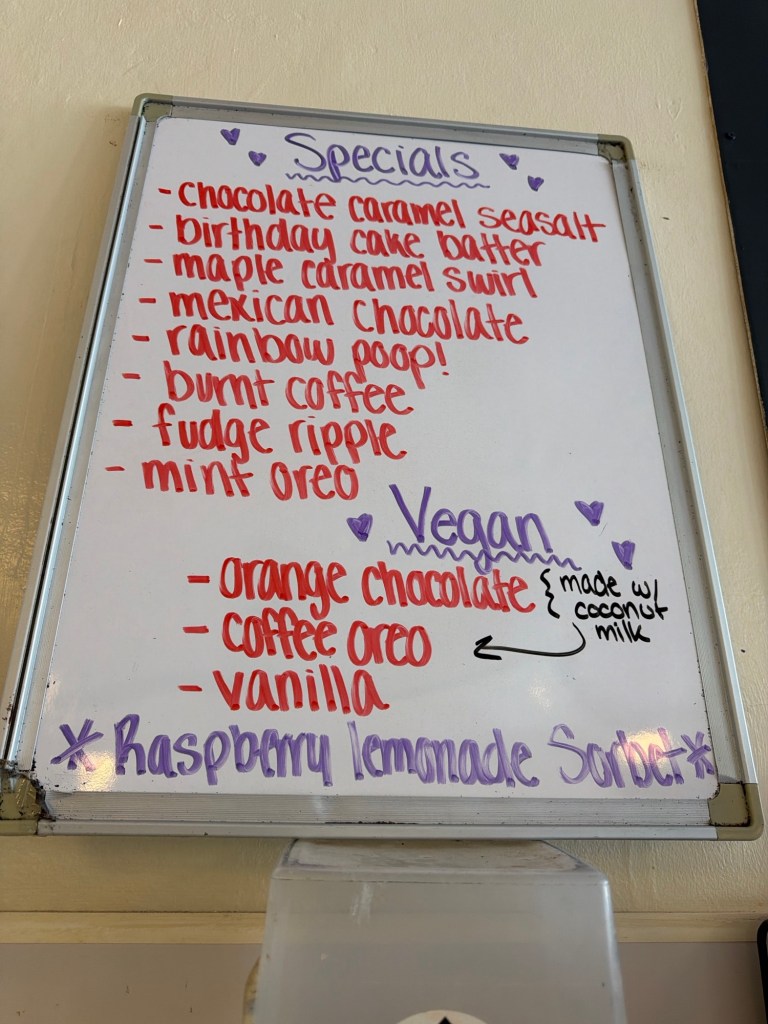 Specials
- chocolate caramel seasalt
- birthday cake batter
- maple caramel swirl
- mexican chocolate
- rainbow poop!
- burnt coffee
- fudge ripple
- mint oreo
Vegan
- orange chocolate { made w/
coconut
milk
- coffee oreo
- vanilla
*Raspberry lemonade Sorbet*